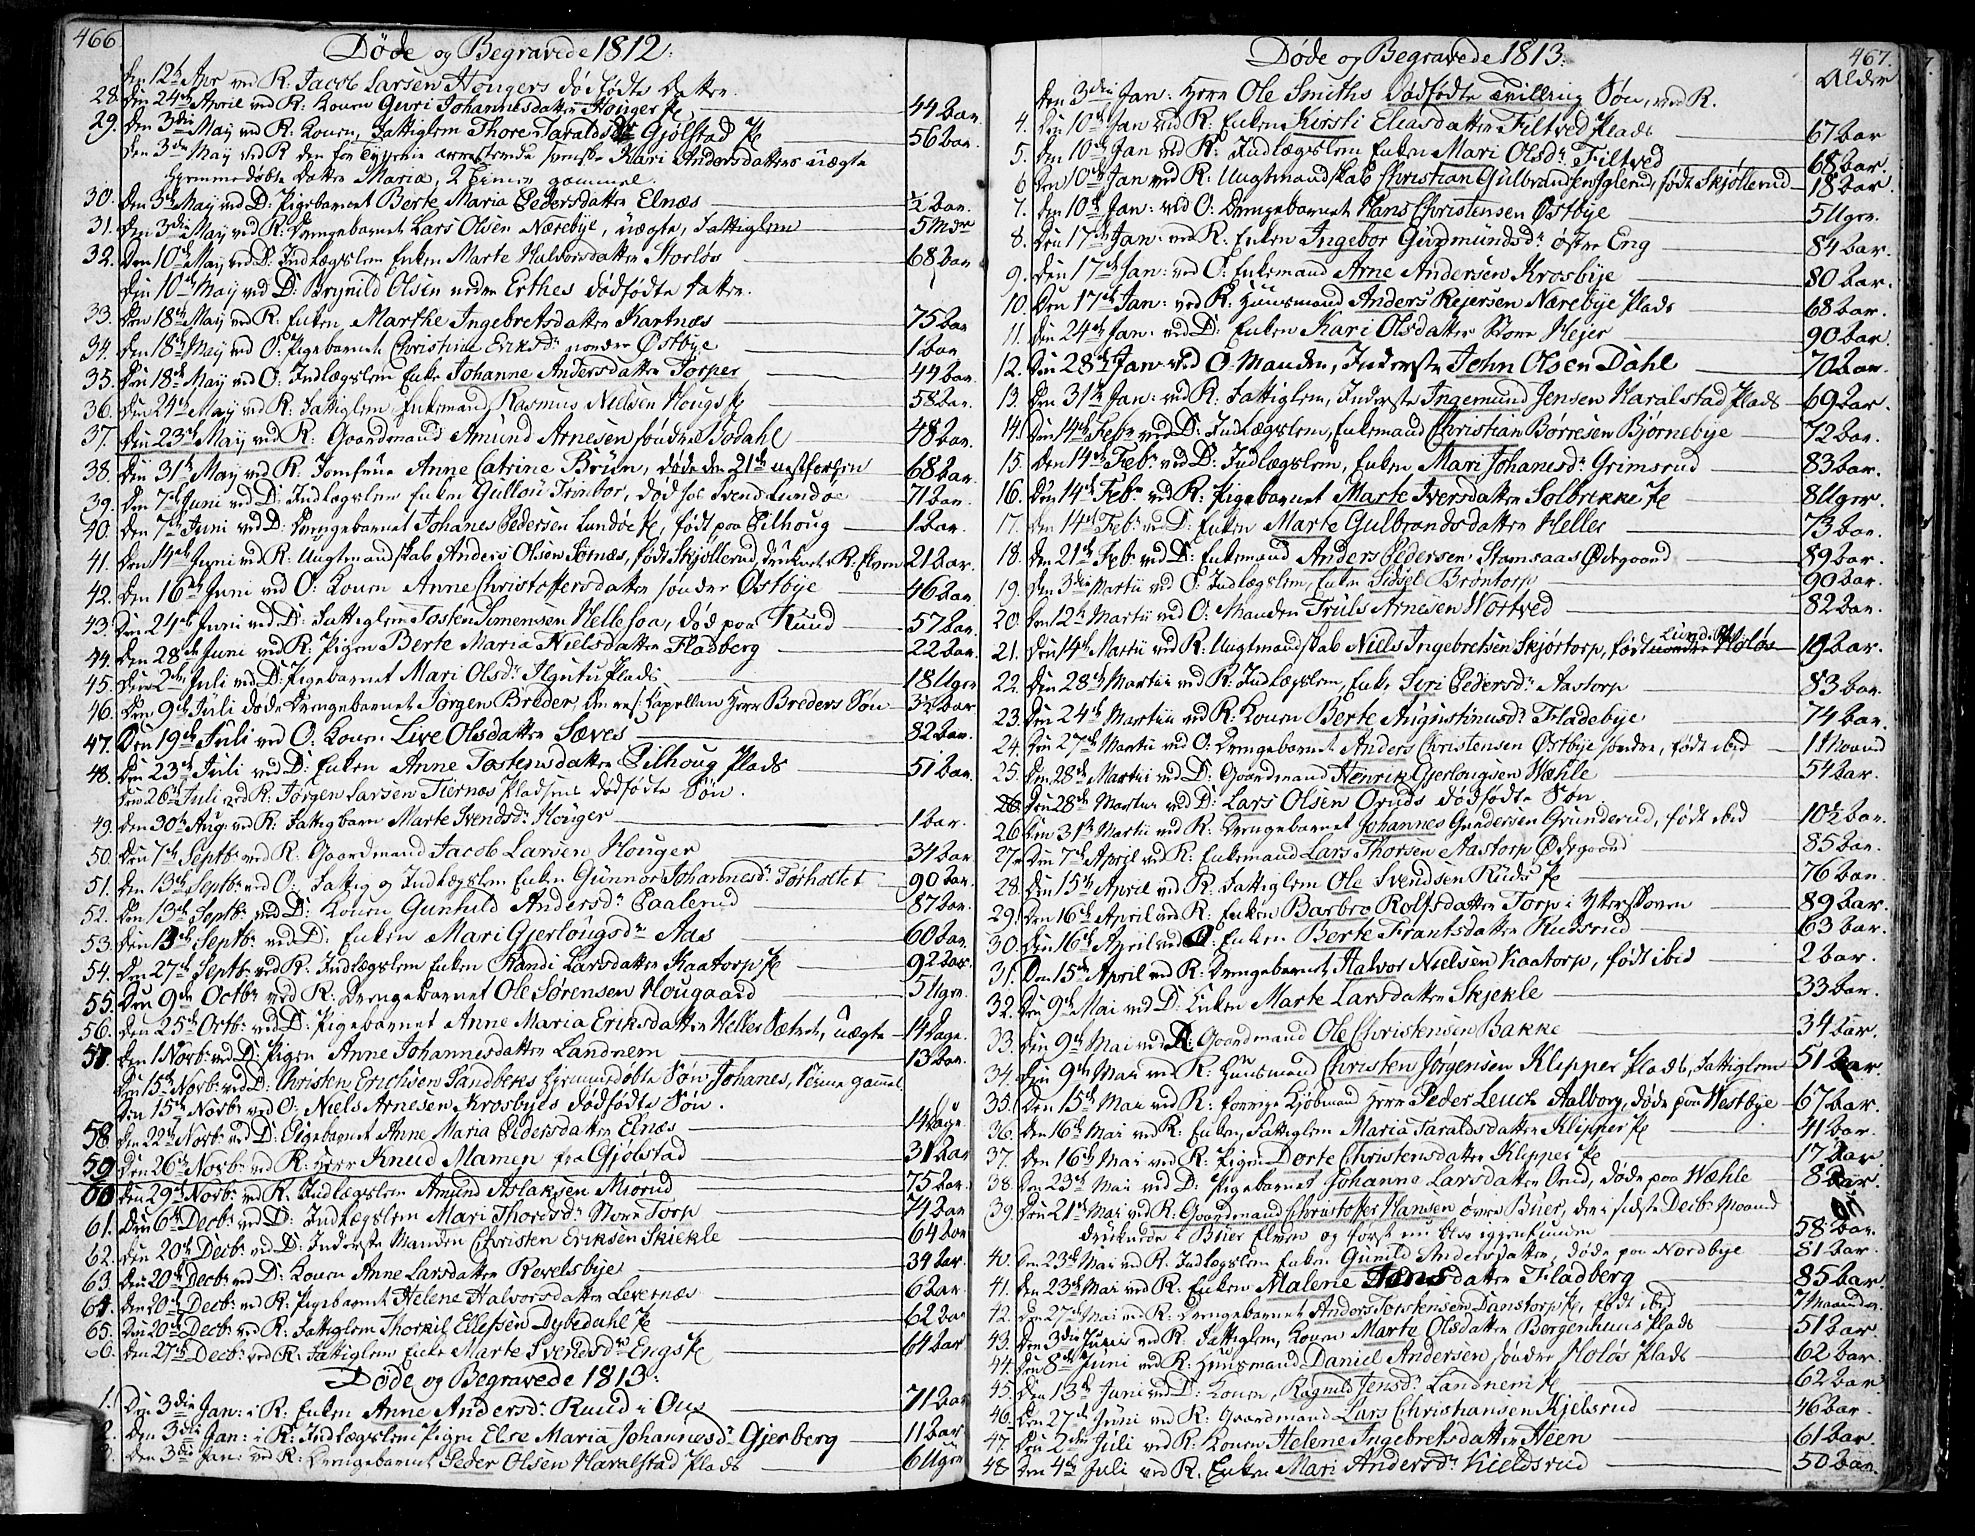 466
Døde og Begravede 1812.
Den 12te Apr ved R: Jacob Larsen Hougers dødfødte Datter.
28. Den 24de April ved R: Konen Guri Johannesdatter Houger Je 44 Aar
29. Den 3die May ved R: Konen, Fattiglem Thore Taraldsdr Gjølstad Je 56 Aar
Den 3die May ved R den for Tyverie arresterede Kari Andersdatters uægte
hjemmedøbte Datter Maria, 2 Timer gammel.
30. Den 3die May ved D: Pigebarnet Berte Maria Pedersdatter Elnæs ½ Aar
31. Den 3die May ved R: Drengebarnet Lars Olsen Nærebye, uægte, Fattiglem 5 Mdr
32. Den 10de May ved D: Indlægslem Enken Marte Halvorsdatter Storløs 68 Aar
Den 10de May ved D: Brynild Olsen nedre Erthes dødfødte Datter.
33. Den 18de May ved R: Enken Marthe Ingebretsdatter Kartnæs 75 Aar
34. Den 18de May ved O: Pigebarnet Christine Eriksdr nordre Østbye 1 Aar
35. Den 18de May ved O: Indlægslem Enke Johanne Andersdatter Torper 44 Aar
36. Den 24de May ved R: Fattiglem Enkemand Rasmus Nielsen Hougs Je 58 Aar
37. Den 23de May ved R: Gaardmand Amund Arnesen søndre Sodahl 48 Aar
38. Den 31te May ved R. Jomfrue Anne Catrine Brün, døde den 21de næstforhen 68 Aar
39. Den 7de Juni ved D: Indlægslem Enken Gullou Trinbor, død hos Svend Lundøe 71 Aar
40. Den 7de Juni ved D: Drengebarnet Johanes Pedersen Lundøe Je, født paa Eilhoug 1 Aar
41. Den 14de Juni ved R: Ungtmandskab Anders Olsen Sørnæs, født Skjøllerud, druknet i R: Elven 21 Aar
42. Den 16de Juni ved O: Konen Anne Christoffersdatter søndre Østbye 46 Aar
43. Den 21de Juni ved D: Fattiglem Tosten Simensen Hellesaa, død paa Ruud 57 Aar
44. Den 28de Juni ved R: Pigen Berte Maria Nielsdatter Fladberg 22 Aar
45. Den 2den Juli ved D: Pigebarnet Mari Olsdr Ilgutu Plads 18 Uger
46. Den 9de Juli døde Drengebarnet Jørgen Breder, den res: Capellan Herr Breders Søn 3½ Aar
47. Den 19de Juli ved O: Konen Live Olsdatter Sæves 82 Aar
48. Den 23de Juli ved D: Enken Anne Tostensdatter Eilhoug Plads 51 Aar
Den 26de Juli ved R: Jørgen Larsen Tiernæs Pladsens dødfødte Søn.
49. Den 30te Aug: ved R: Fattigbarn Marte Svendsdr Houger 1 Aar
50. Den 7de Septbr ved R: Gaardmand Jacob Larsen Houger 34 Aar
51. Den 13de Septbr ved O: Fattig og Indlægslem Enken Gunnor Johannesdr Torholtet 90 Aar
52. Den 13de Septbr ved D: Konen Gunhild Andersdr Paalerud 87 Aar
53. Den 13de Septbr ved D: Enken Mari Gjerlougsdr Aas 60 Aar
54. Den 27de Septbr ved R: Indlægslem Enken Randi Larsdatter Kaatorp Je 92 Aar
55. Den 9de Octbr ved R: Drengebarnet Ole Sørensen Hougaard 5 Uger
56. Den 25de Octbr ved D: Pigebarnet Anne Maria Eriksdatter Heller Sætret, uægte 14 Dage
57. Den 1 Novbr ved D: Pigen Anne Johannesdatter Landnem 13 Aar
Den 15de Novbr ved D: Christen Erichsen Sandbeks hjemmedøbte Søn: Johanes, 1 Time gammel
Den 15de Novbr ved O: Niels Arnesen Krosbyes dødfødte Søn.
58. Den 22de Novbr ved D: Pigebarnet Anne Maria Pedersdatter Elnæs 14 Dage
59. Den 26de Novbr ved R: Herr Knud Mamen fra Gjølstad 31 Aar
60. Den 29de Novbr ved R. Indlægslem Amund Aslaksen Miørud 75 Aar
61. Den 6te Decbr ved D: Indlægslem Mari Thoresdr Store Torp 74 Aar
62. Den 20de Decbr ved D: Inderste Manden Christen Eriksen Skiekle 64 Aar
63. Den 20de Decbr ved D: Konen Anne Larsdatter Revelsbye 34 Aar
64. Den 20de Decbr ved R: Pigebarnet Helene Halvorsdatter Levernæs 6 Aar
65. Den 20de Decbr ved R: Fattiglem Thorkil Ellefsen Dybedahl Je 62 Aar
66. Den 27de Decbr ved R: Fattiglem Enke Marte Sverledsdr Engs Je 64 Aar
Døde og Begravede 1813.
1. Den 3die Jan: i R: Enken Anne Andersdr Ruud i Ous 71 Aar
2. Den 3die Jan: i R: Indlægslem Pigen Else Maria Johannesdr Gjerberg 11 Aar
3. Den 3die Jan: ved R: Drengebarnet Peder Olsen Haralstad Plads 6 Uger
467.
Døde og Begravede 1813.
Alder
Den 3die Jan: Herr Ole Smiths dødfødte tvilling Søn, ved R.
4. Den 10de Jan ved R: Enken Kirsti Eliasdatter Filtved Plads 67 Aar
5. Den 10de Jan ved R: Indlægslem Enken Mari Olsdr Filtved 68 Aar.
6 Den 10de Jan ved R: Ungtmandskab Christian Gulbrandsen Iglerud, født Skjøllerud 18 Aar
7. Den 10de Jan: ved O: Drengebarnet Hans Christensen Østbye 5 Uger.
8. Den 17de Jan: ved R: Enken Ingebor Gudmundsdr østre Eng 84 Aar.
9. Den 17de Jan: ved O: Enkemand Arne Andersen Krosbye 80 Aar.
10. Den 17de Jan: ved R: Huusmand Anders Rejersen Nærebye Plads 68 Aar.
11. Den 24de Jan: ved D: Enken Kari Olsdatter Store Hejer 90 Aar.
12. Den 28de Jan: ved O: Manden, Inderste John Olsen Dahl 70 Aar.
13. Den 31te Jan: ved R: Fattiglem, Inderste Ingemund Jensen Haralstad Plads 69 Aar.
14. Den 14de Febr ved D: Indlægslem, Enkemand Christian Børresen Bjørnebye 72 Aar.
15. Den 14de Febr ved D: Indlægslem, Enken Mari Johanesdr Grimsrud 83 Aar.
16. Den 14de Febr ved R: Pigebarnet Marte Iversdatter Solbrekke Je 8 Uger.
17. Den 14de Febr ved D: Enken Marte Gulbrandsdatter Heller 73 Aar.
18. Den 21de Febr ved D: Enkemand Anders Pedersen Stamsaas Ødegaard 89 Aar.
19. Den 3die Martii ved O: Indlægslem, Enke Sidsel Brøntorp 90 Aar.
20. Den 12te Martii ved O: Manden Truls Arnesen Nortved 82 Aar.
21. Den 14de Martii ved R: Ungtmandskab Niels Ingebretsen Skjørtorp, født nordre Holøs 19 Aar.
22. Den 28de Martii ved R: Indlægslem, Enke Siri Pedersdr Aastorp 83 Aar.
23. Den 24de Martii ved R: Konen Berte Augustinusdr Fladebye 74 Aar.
24. Den 27de Martii ved O: Drengebarnet Anders Christensen Østbye søndre, født ibid 1 Maaned
25. Den 28de Martii ved D: Gaardmand Henrik Gjerlougsen Wæhle 54 Aar.
26. Den 28de Martii ved D: Lars Olsen Oruds dødfødte Søn
26 Den 31te Martii ved R: Drengebarnet Johannes Gundersen Grunderud, født ibid 10½ Aar.
27. Den 7de April ved R: Enkemand Lars Thorsen Aastorp Ødegaard 85 Aar.
28. Den 15de April ved R: Fattiglem Ole Svendsen Ruds Je 76 Aar.
29. Den 16de April ved R: Enken Barbro Rolfsdatter Torp i Ytterskoven 89 Aar.
30. Den 16de April ved R: Enken Berte Frantsdatter Rudsrud 63 Aar.
31. Den 15de April ved R: Drengebarnet Halvor Nielsen Kaatorp, født ibid 2 Aar.
32. Den 9de Mai ved D: Enken Marte Larsdatter Skjekle 33 Aar.
33. Den 9de Mai ved D: Gaardmand Ole Christensen Bakke 34 Aar.
34. Den 9de Mai ved R: Huusmand Christen Jørgensen Klipper Plads, Fattiglem 51 Aar.
35. Den 15de Mai ved R: forrige Kjøbmand Herr Peder Leuch Aalborg, døde paa Westbye 67 Aar.
36. Den 16de Mai ved R: Enken, Fattiglem Maria Taraldsdatter Klipper Je 41 Aar.
37. Den 16de Mai ved R: Pigen Dorte Christensdatter Klepper Je 17 Aar
38. Den 23de Mai ved D: Pigebarnet Johanne Larsdatter Orud, døde paa Wæhle 8 Aar.
39. Den 21de Mai ved R: Gaardmand Christoffer Hansen øvre Buer, der i sidste Decbr Maaned
druknede i Buer Elven og først nu blev igjenfunden 58 Aar.
40. Den 23de Mai ved R. Indlægslem Enken Gunild Andersdatter, døde paa Nordbye 81 Aar.
41. Den 23de Mai ved R: Enken Malene Jensdatter Fladberg 85 Aar.
42. Den 27de Mai ved R: Drengebarnet Anders Torstensen Danstorp Je, født ibid 7 Maaneder
43. Den 3die Junii ved R: Fattiglem, Konen Marte Olsdatter Bergenhuus Plads 51 Aar.
44. Den 8de Juni ved R: Huusmand Daniel Andersen søndre Holøs Plads 62 Aar.
45. Den 13de Juni ved D: Konen, Ragnild Jensdr Landnem Je 62 Aar.
46. Den 27de Juni ved R: Gaardmand Lars Christiansen Kjelsrud 46 Aar.
47. Den 2den Juli ved R: Konen Helene Ingebretsdatter Heen 61 Aar.
48 Den 4de Juli ved R. Enken Mari Andersdr Kieldsrud 50 Aar.